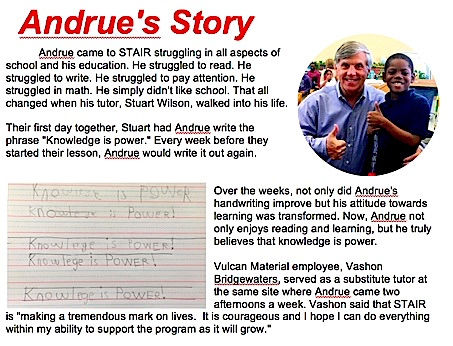 Andrue's Story
Andrue came to STAIR struggling in all aspects of
school and his education. He struggled to read. He
struggled to write. He struggled to pay attention. He
struggled in math. He simply didn't like school. That all
changed when his tutor, Stuart Wilson, walked into his life.
Their first day together, Stuart had Andrue write the
phrase "Knowledge is power." Every week before they
started their lesson, Andrue would write it out again.
Knowlege is POWER
Knowlege is POWER!
Knowlege is POWER!
Knowlege is POWER!
Knowlege is POWER!
Over the weeks, not only did Andrue's
handwriting improve but his attitude towards
learning was transformed. Now, Andrue not
only enjoys reading and learning, but he truly
believes that knowledge is power.
Vulcan Material employee, Vashon
Bridgewaters, served as a substitute tutor at
the same site where Andrue came two
afternoons a week. Vashon said that STAIR
is "making a tremendous mark on lives.  It is courageous and I hope I can do everything
within my ability to support the program as it will grow."